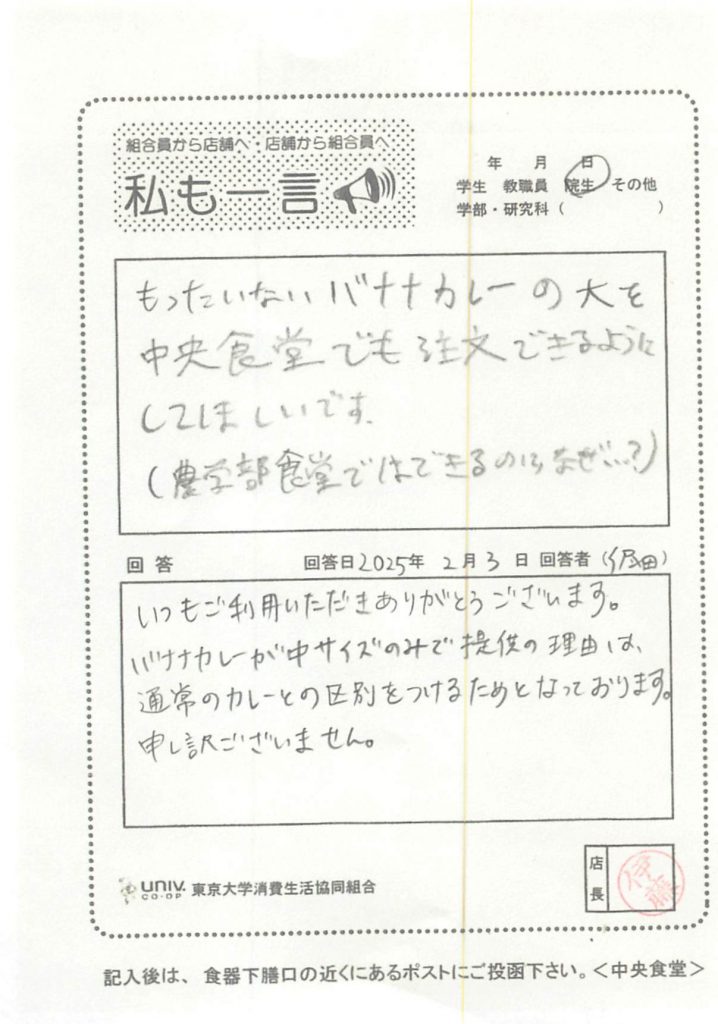 組合員から店舗へ・店舗から組合員へ
私も一言
年 月 日
学生 教職員 院生 その他
学部・研究科( )
もったいないバナナカレーの大を
中央食堂でも注文できるように
してほしいです.
(農学部食堂ではできるのになぜ...?)
回答 回答日2025年 2月3日 回答者(依田)
いつもご利用いただきありがとうございます。
バナナカレーが中サイズのみで提供の理由は、
通常のカレーとの区別をつけるためとなっております。
申し訳ございません。
UNIV. CO-OP 東京大学消費生活協同組合
店長
伊藤
記入後は、食器下膳口の近くにあるポストにご投函下さい。<中央食堂>